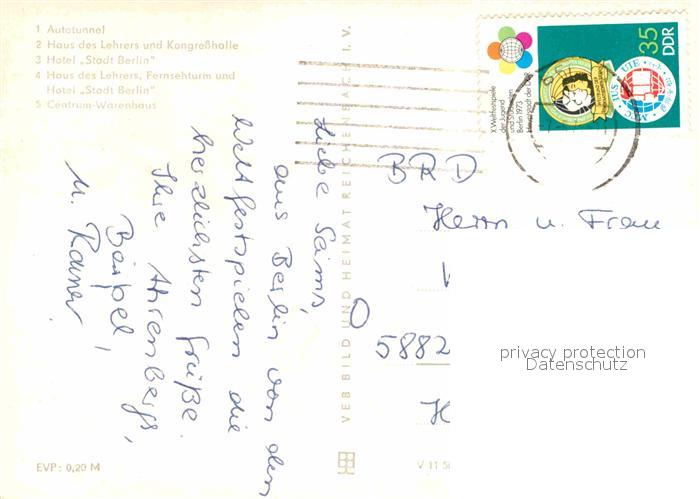 1 Autotunnel
2 Haus des Lehrers und Kongreßhalle
3 Hotel „Stadt Berlin"
4 Haus des Lehrers, Fernsehturm und
Hotel „Stadt Berlin"
5 Centrum-Warenhaus
X. Weltfestspiele
der Jugend
und Studenten
Berlin 1973
Hauptstadt der DDR
35
DDR
Liebe
aus Berlin von den
Weltfestspielen die
herzlichsten Grüße.
Ihre Ahrenbergs,
u. Rainer
VEB BILD UND HEIMAT REICHENBACH I. V.
BRD
Herrn u. Frau
5882
H
privacy protection
Datenschutz
EVP: 0,20 M
V 11 50